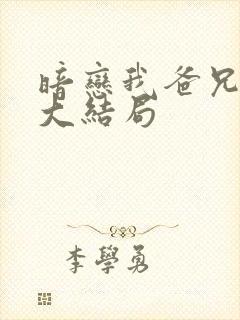 暗戀我爸兄
大結局
李學勇